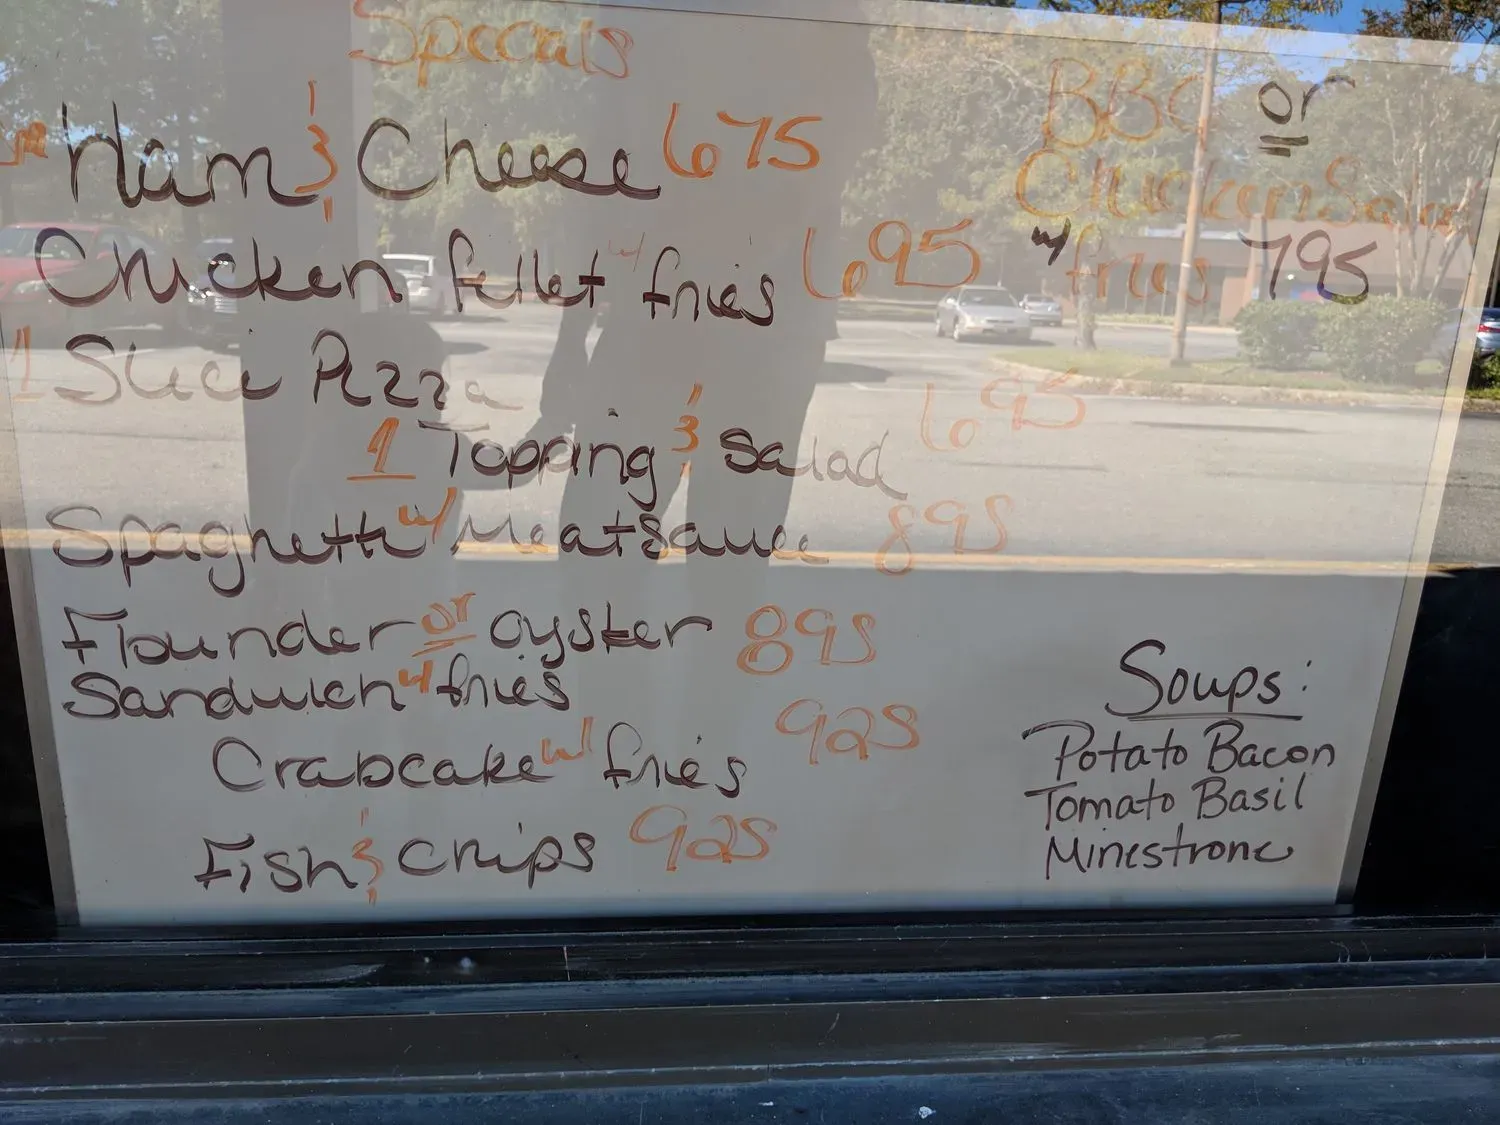 Specials
Ham & Cheese 675
Chicken fillet w/ fries 695
1 Slice Pizza
1 Topping & Salad 695
Spaghetti w/ Meatsauce 895
Flounder or oyster 895
Sandwich w/ fries
Crabcake w/ fries 925
Fish & Chips 925
BBQ or
Chicken Salad
w/ fries 795
Soups:
Potato Bacon
Tomato Basil
Minestrone